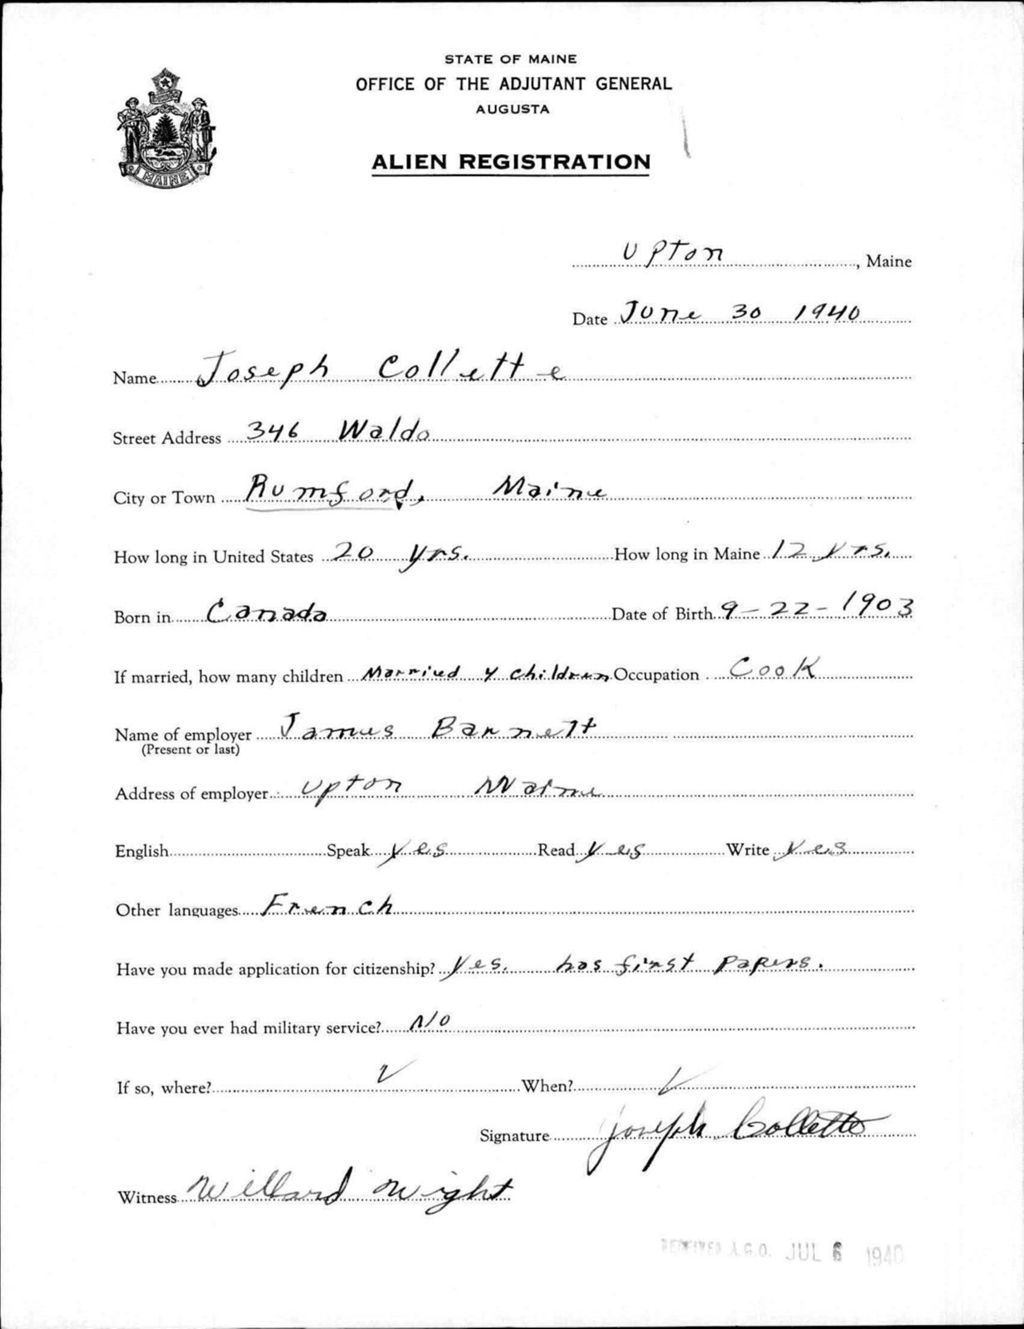 STATE OF MAINE
OFFICE OF THE ADJUTANT GENERAL
AUGUSTA
ALIEN REGISTRATION
MAINE
Upton, Maine
Date June 30 1940
Name Joseph Collette
Street Address 346 Waldo
City or Town Rumford, Maine
How long in United States 20 yrs. How long in Maine 12 yrs.
Born in Canada Date of Birth 9-22-1903
If married, how many children Married 4 children Occupation Cook
Name of employer James Barnett
(Present or last)
Address of employer Upton Maine
English Speak yes Read yes Write yes
Other languages French
Have you made application for citizenship? Yes. has first papers.
Have you ever had military service? No
If so, where? When?
Signature Joseph Collette
Witness Willard Wight
RECEIVED A.G.O. JUL 6 1940